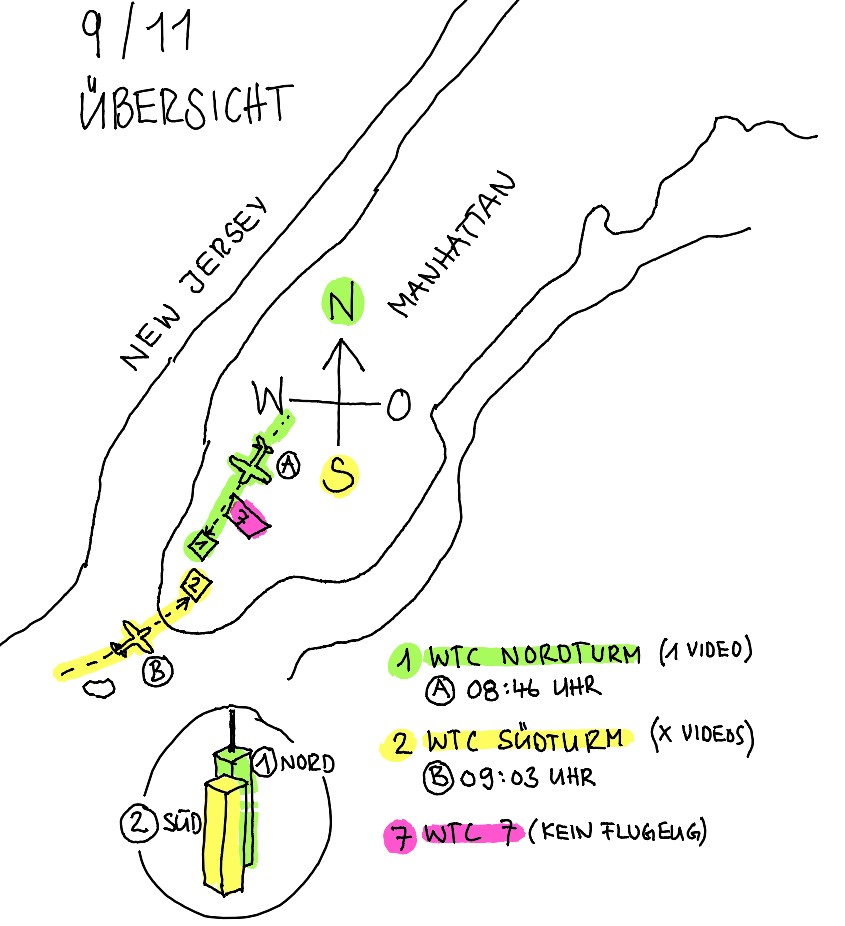 9/11
ÜBERSICHT
NEW JERSEY
MANHATTAN
N
W
O
S
A
7
1
2
B
1 WTC NORDTURM (1 VIDEO)
A 08:46 UHR
2 WTC SÜDTURM (X VIDEOS)
B 09:03 UHR
7 WTC 7 (KEIN FLUGEUG)
1 NORD
2 SÜD